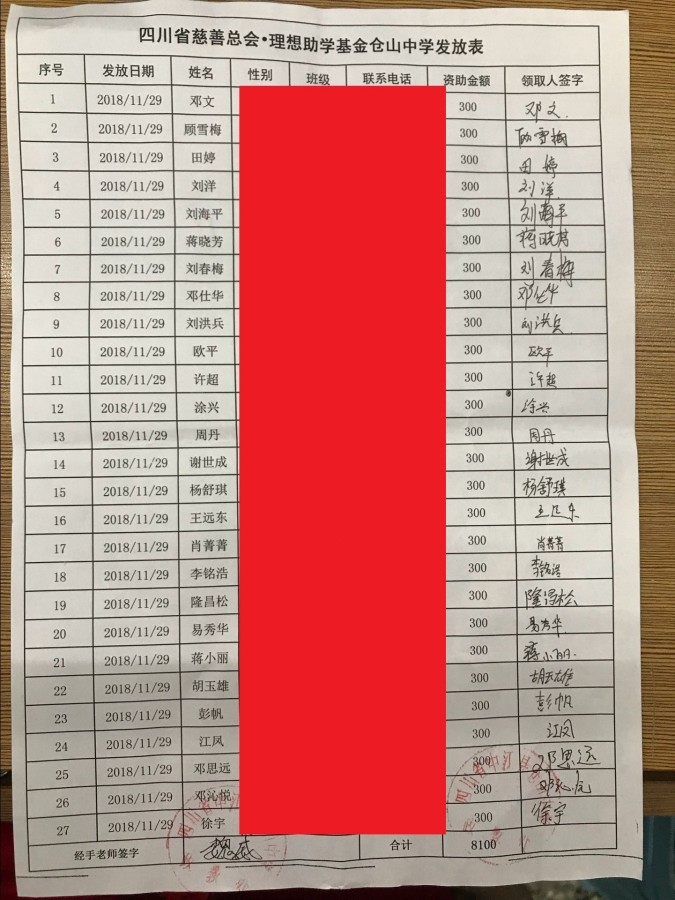 四川省慈善总会·理想助学基金仓山中学发放表
序号 发放日期 姓名 性别 班级 联系电话 资助金额 领取人签字
1 2018/11/29 邓文 300 邓文
2 2018/11/29 顾雪梅 300 顾雪梅
3 2018/11/29 田婷 300 田婷
4 2018/11/29 刘洋 300 刘洋
5 2018/11/29 刘海平 300 刘海平
6 2018/11/29 蒋晓芳 300 蒋晓芳
7 2018/11/29 刘春梅 300 刘春梅
8 2018/11/29 邓仕华 300 邓仕华
9 2018/11/29 刘洪兵 300 刘洪兵
10 2018/11/29 欧平 300 欧平
11 2018/11/29 许超 300 许超
12 2018/11/29 涂兴 300 涂兴
13 2018/11/29 周丹 300 周丹
14 2018/11/29 谢世成 300 谢世成
15 2018/11/29 杨舒琪 300 杨舒琪
16 2018/11/29 王远东 300 王远东
17 2018/11/29 肖菁菁 300 肖菁菁
18 2018/11/29 李铭浩 300 李铭浩
19 2018/11/29 隆昌松 300 隆昌松
20 2018/11/29 易秀华 300 易秀华
21 2018/11/29 蒋小丽 300 蒋小丽
22 2018/11/29 胡玉雄 300 胡玉雄
23 2018/11/29 彭帆 300 彭帆
24 2018/11/29 江凤 300 江凤
25 2018/11/29 邓思远 300 邓思远
26 2018/11/29 邓沁悦 300
27 2018/11/29 徐宇 300 徐宇
经手老师签字 合计 8100